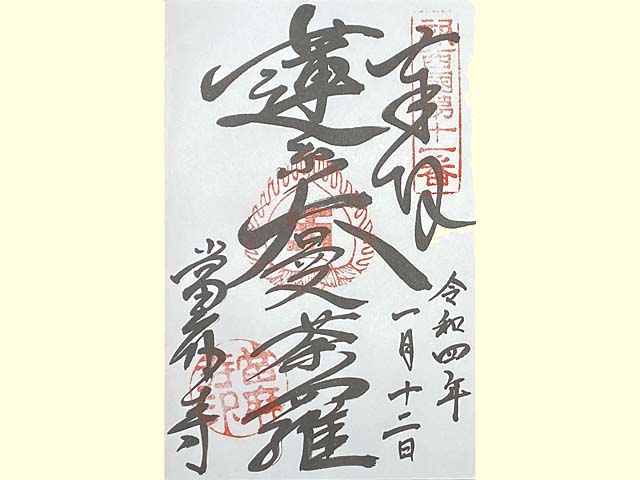 新西國第十一番
奉拝
令和四年
一月十二日
蓮糸大曼荼羅
當麻寺
當麻寺印